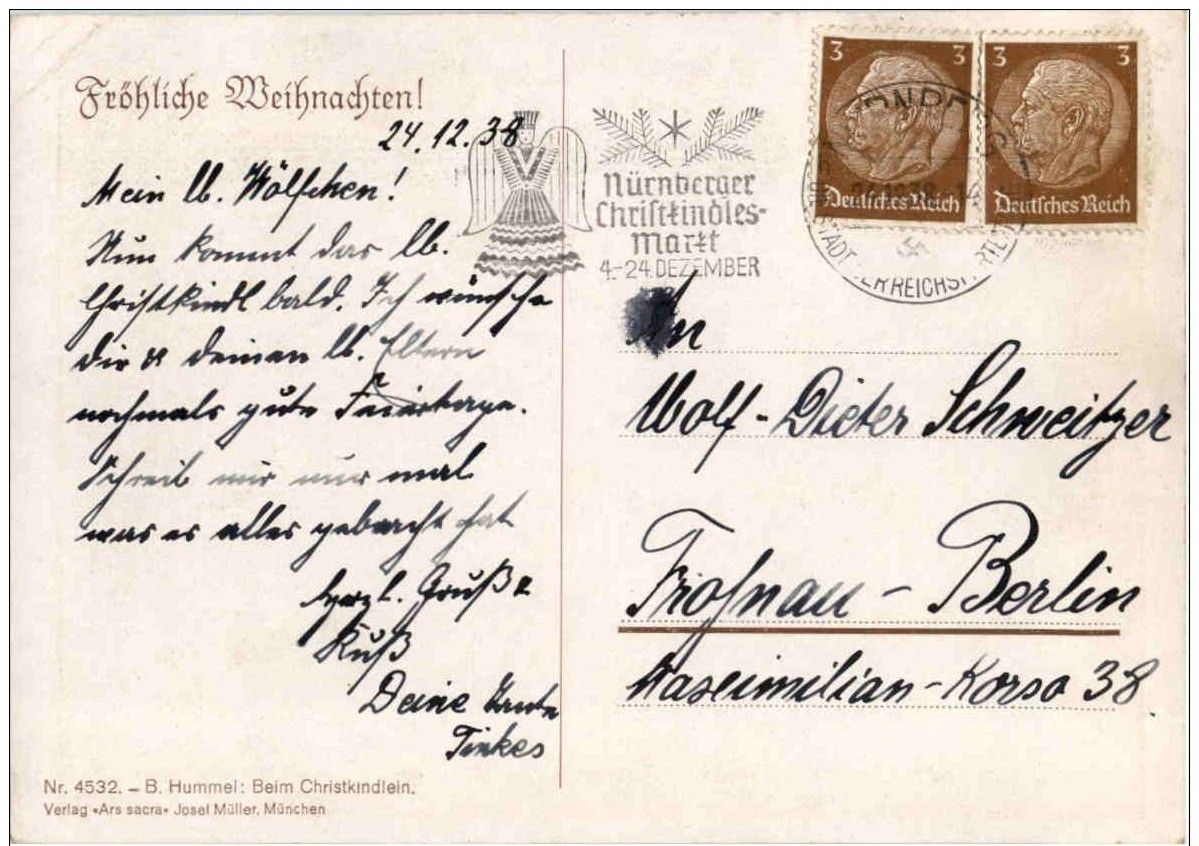 Fröhliche Weihnachten!
24.12.38
Mein lb. Wölfchen!
Nun kommt das lb.
Christkindl bald. Ich wünsche
dir & deinen lb. Eltern
nochmals gute Feiertage.
Schreib mir nur mal
was es alles gebracht hat
Herzl. Gruß &
Kuß
Deine Tante
Tinkes
Nr. 4532. – B. Hummel: Beim Christkindlein.
Verlag «Ars sacra» Josef Müller, München
Nürnberger
Christkindles-
Markt
4.-24. DEZEMBER
3 3
Deutsches Reich
3 3
Deutsches Reich
An
Wolf-Dieter Schweitzer
Frohnau - Berlin
Maximilian-Korso 38